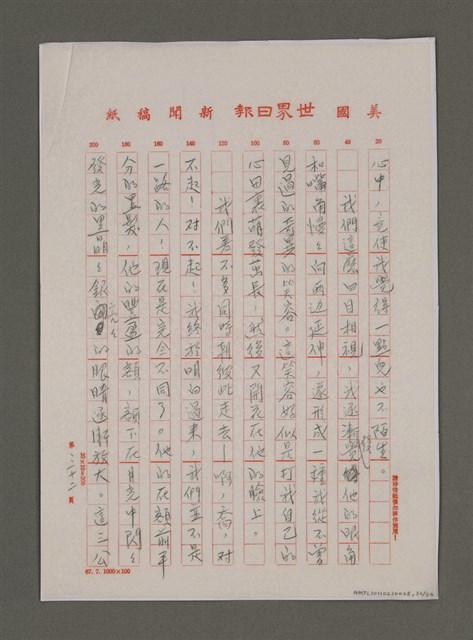 美國世界日報新聞稿紙
心中，竟使我覺得一點兒也不陌生。
我們這麼四目相視，我逐漸發覺他的眼角
和嘴角慢々向兩边延伸，遂形成一種我從不曾
見過的奇異的笑容。這笑容好似是打我自己的
心田裏萌發茁長，然後又開花在他的臉上。
我們差不多同時朝彼此走去——啊，喬，對
不起！對不起！我終於明白過來，我們並不是
一路的人！現在是完全不同了。他的在額前平
分的黑髮，他的豐盈的額，額下在月光中閃々
發光的黑晶々銀亮々的眼睛逐漸放大。這三公
20
40
60
80
100
120
140
160
180
200
第 二十二 頁
20×10=200
67. 7. 1000×100